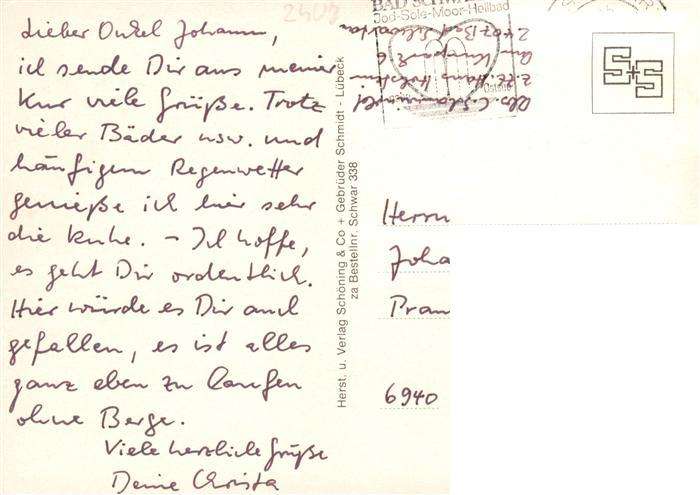 Lieber Onkel Johann,
ich sende Dir aus meiner
Kur viele Grüße. Trotz
vieler Bäder usw. und
häufigem Regenwetter
genieße ich hier sehr
die Ruhe. – Ich hoffe,
es geht Dir ordentlich.
Hier würde es Dir auch
gefallen, es ist alles
ganz eben zu laufen
ohne Berge.
Viele herzliche Grüße
Deine Christa
Herst. u. Verlag Schöning & Co + Gebrüder Schmidt - Lübeck
za Bestellnr. Schwar 338
BAD SCHWA
Jod-Sole-Moor-Heilbad
Ostsee
Abs. C.
z. Zt. Haus Holstein
Am Kurpark 6
S+S
Herrn
Joha
Pran
6940